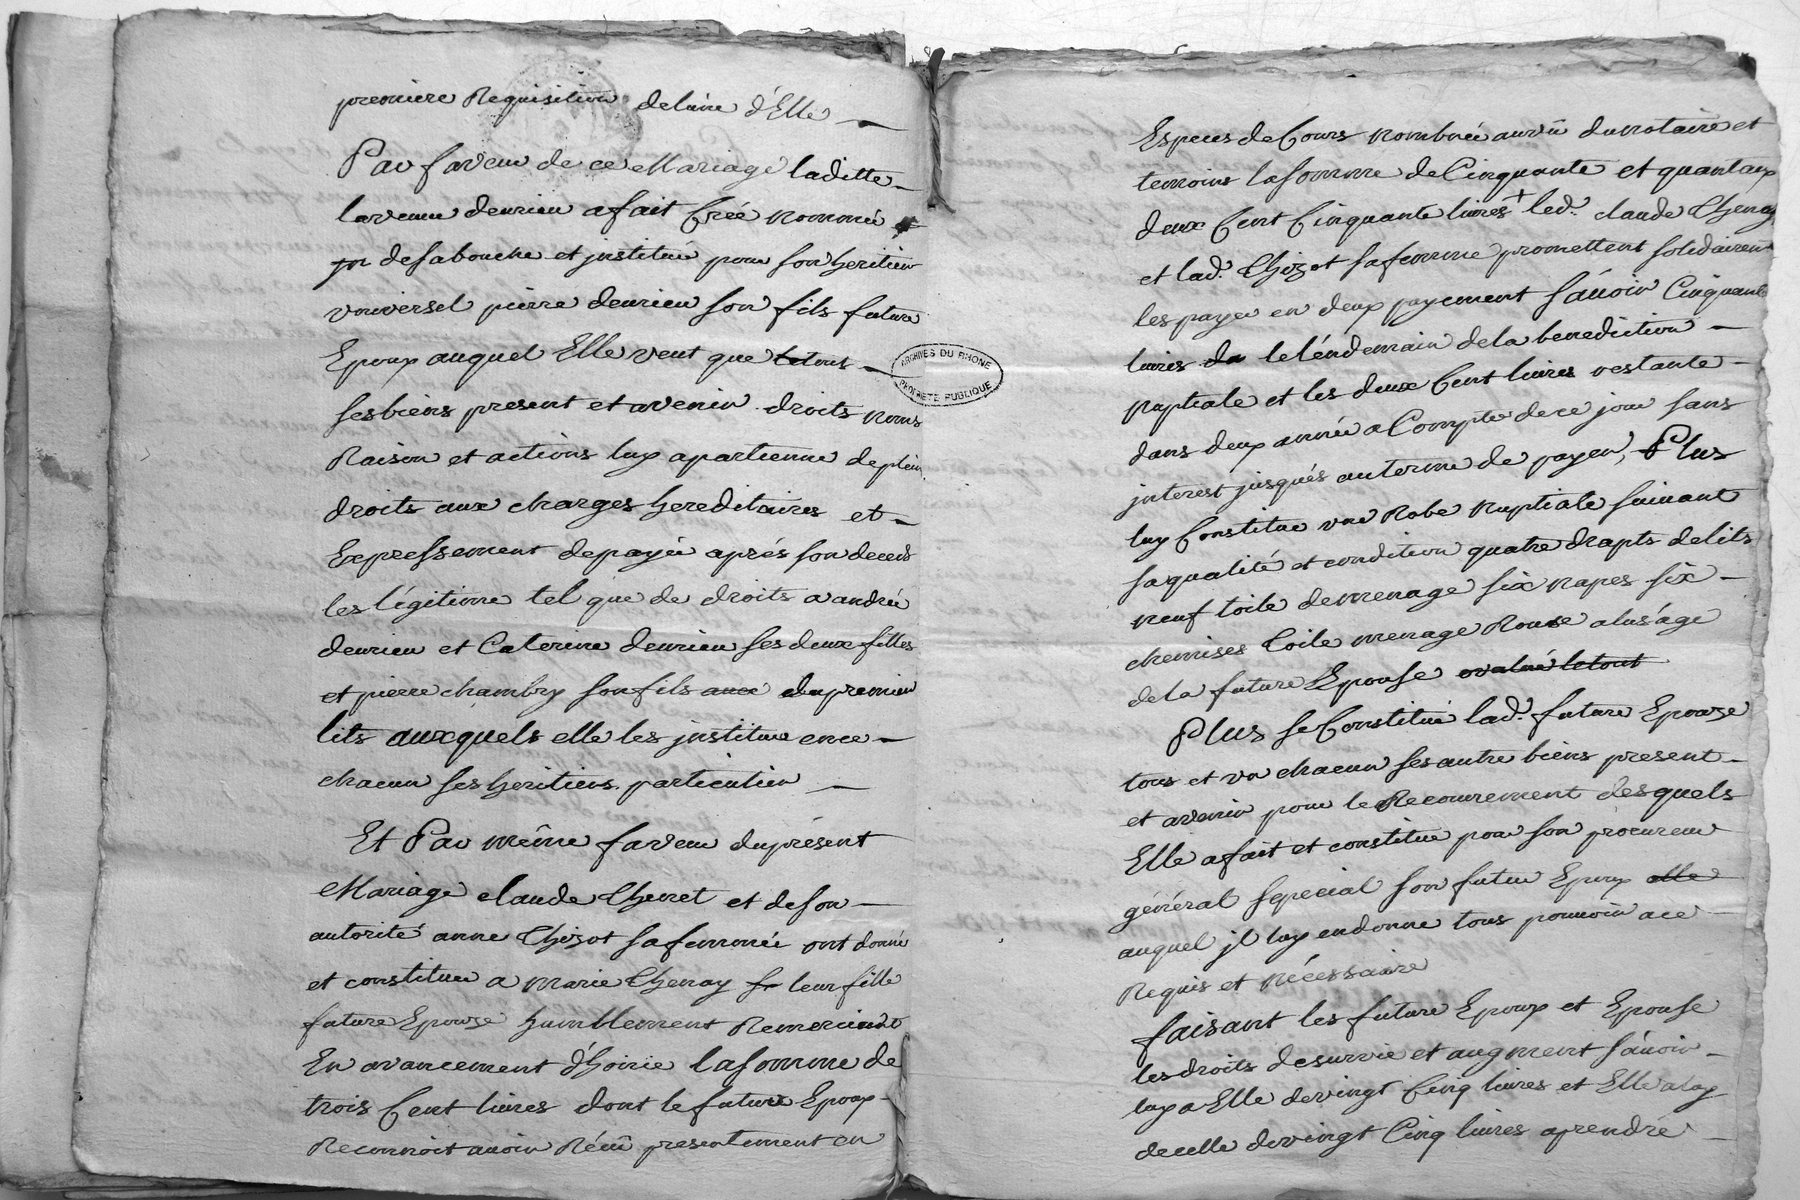 premiere Requisition de lune d'Elle
Par faveur de ce Mariage laditte
laveuve deurieu a fait Créé nommée
de sa bouche et jnstitué pour son heritier
vniversel pierre deurieu son fils future
Epoux auquel Elle veut que tous
ses biens present et avenir droits noms
Raison et actions luy apartienne de plein
droits aux charges hereditaires et
Expressement de payée aprés son deceds
les légitime tel que de droits a andrée
deurieu et Caterine deurieu ses deux filles
et pierre chambry son fils du premier
lits auxquels elle les jnstitue en ce
chacun ses heritiers particulier
Et Par même faveur du présent
Mariage claude Thenet et de son
autorité anne Thizot sa femmée ont donné
et constituée a marie Thenay leur fille
future Epouze humblement Remerciant
En avancement d'hoirie la somme de
trois Cent livres dont le future Epoux
Reconnoit avoir Réçû presentement en
Especes de Cours nombrée au vû du notaire et
temoins la somme de Cinquante et quant aux
deux Cent Cinquante livres + led. claude Thenay
et lad. Thizot sa femme promettent solidairem
les payer en deux payement sávoir Cinquante
livres le léndemain de la benediction
nuptiale et les deux Cent livres restante
dans deux année a Compter de ce jour sans
jnterest jusqués au terme de payer, Plus
luy Constitue vne Robe nuptiale suivant
sa qualité et condition quatre drapts de lits
neuf toile de menage six napes six
chemises toile menage Rouse a luságe
de la future Epouse evalué le tout
Plus se Constitué lad. future Epouze
tous et vn chacun ses autre biens present
et avenir pour le Recouvrement desquels
Elle a fait et constitue pour son procureur
général special son futur Epoux elle
auquel jl luy en donne tous pouvoir a ce
Requis et nécessaire
faisant les future Epoux et Epouse
les droits de survie et augment sávoir
luy a Elle de vingt Cinq livres et Elle a luy
de celle de vingt Cinq livres a prendre
ARCHIVES DU RHONE
PROPRIETE PUBLIQUE